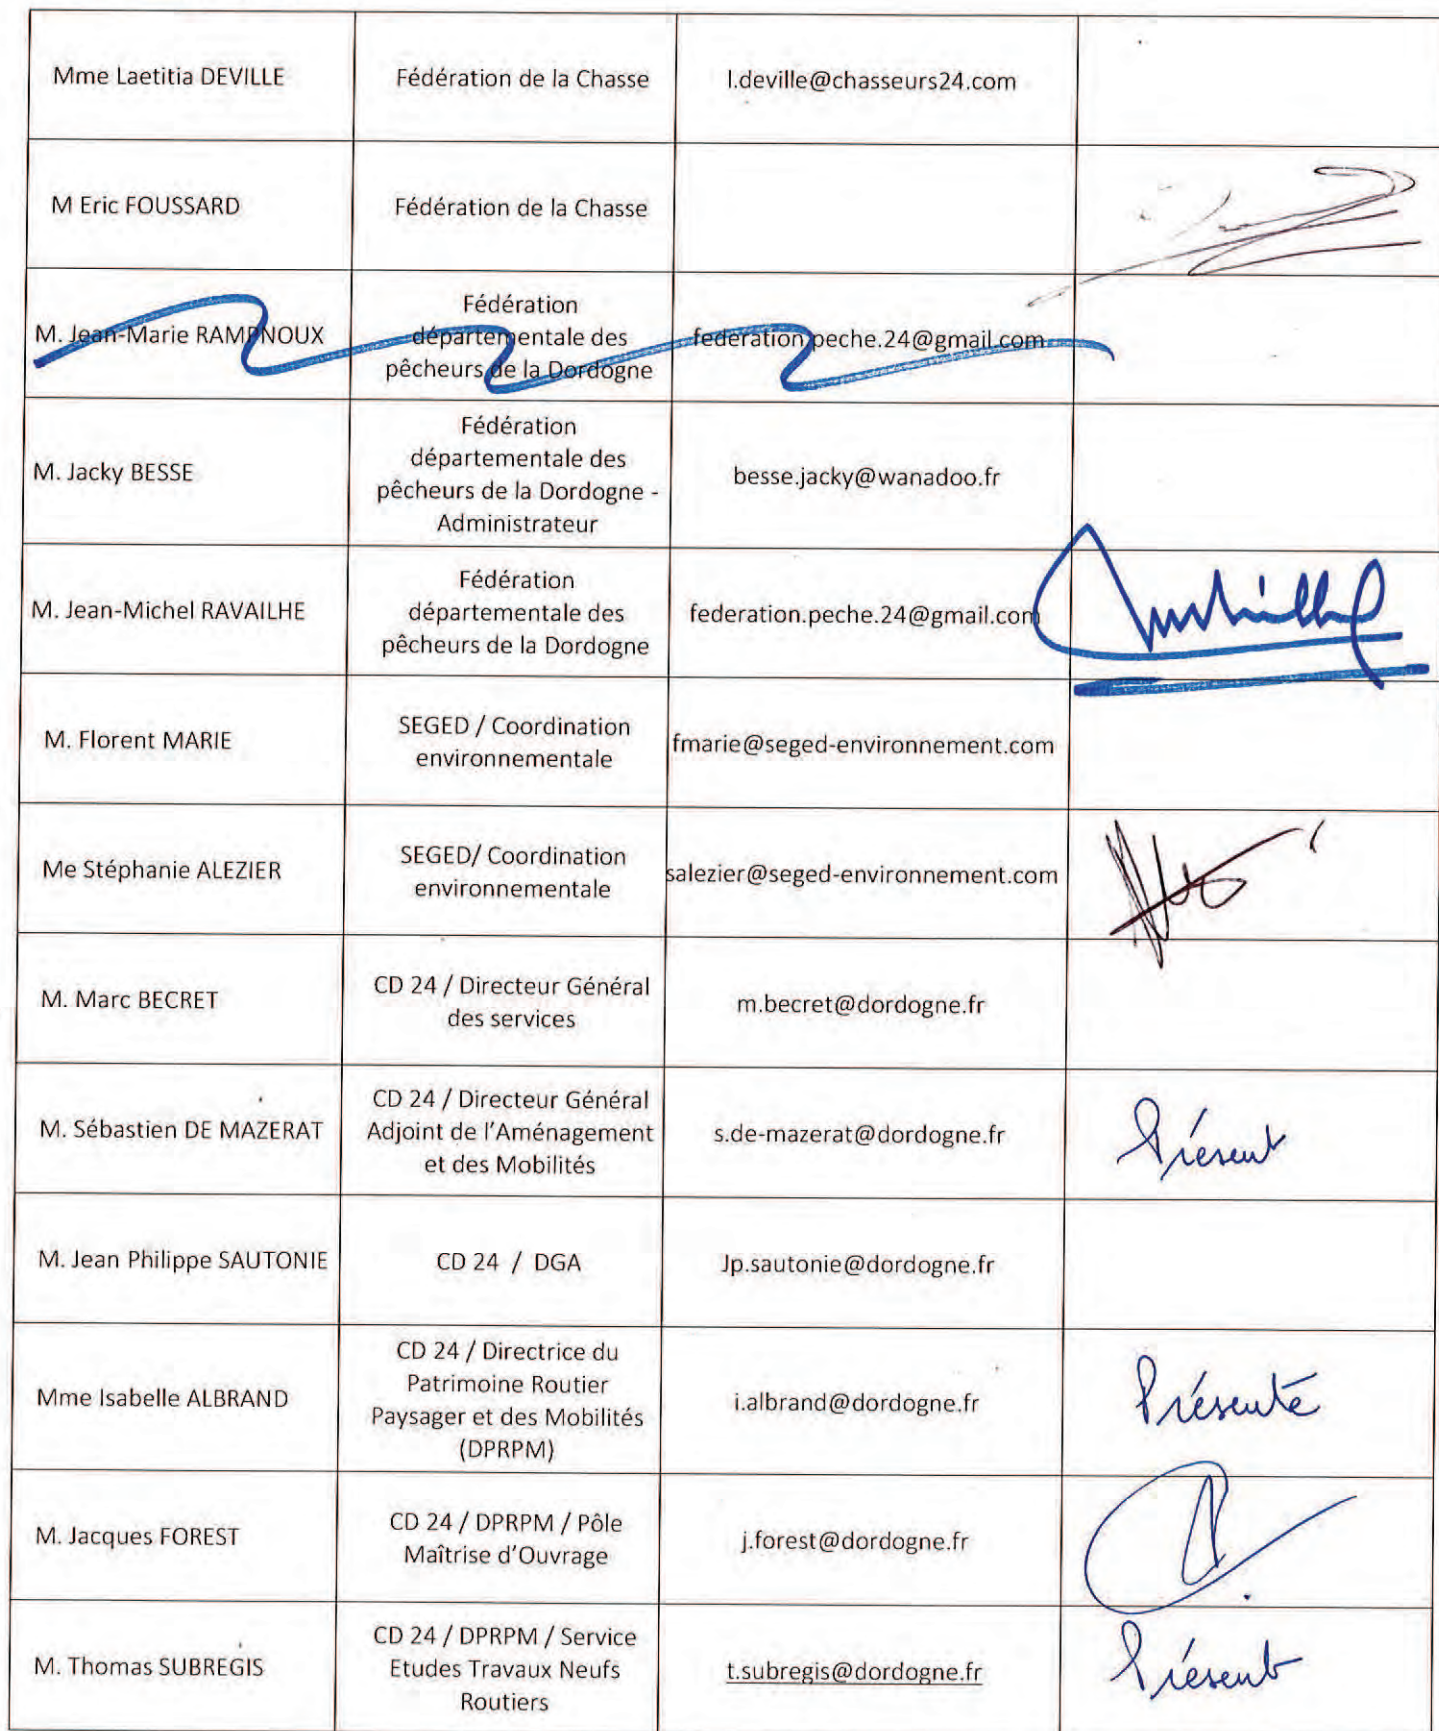 Mme Laetitia DEVILLE
Fédération de la Chasse
l.deville@chasseurs24.com
M Eric FOUSSARD
Fédération de la Chasse
M. Jean-Marie RAMPNOUX
Fédération
départementale des
pêcheurs de la Dordogne
federation.peche.24@gmail.com
M. Jacky BESSE
Fédération
départementale des
pêcheurs de la Dordogne -
Administrateur
besse.jacky@wanadoo.fr
M. Jean-Michel RAVAILHE
Fédération
départementale des
pêcheurs de la Dordogne
federation.peche.24@gmail.com
M. Florent MARIE
SEGED / Coordination
environnementale
fmarie@seged-environnement.com
Me Stéphanie ALEZIER
SEGED/ Coordination
environnementale
salezier@seged-environnement.com
M. Marc BECRET
CD 24 / Directeur Général
des services
m.becret@dordogne.fr
M. Sébastien DE MAZERAT
CD 24 / Directeur Général
Adjoint de l'Aménagement
et des Mobilités
s.de-mazerat@dordogne.fr
Présent
M. Jean Philippe SAUTONIE
CD 24 / DGA
Jp.sautonie@dordogne.fr
Mme Isabelle ALBRAND
CD 24 / Directrice du
Patrimoine Routier
Paysager et des Mobilités
(DPRPM)
i.albrand@dordogne.fr
Présente
M. Jacques FOREST
CD 24 / DPRPM / Pôle
Maîtrise d'Ouvrage
j.forest@dordogne.fr
M. Thomas SUBREGIS
CD 24 / DPRPM / Service
Etudes Travaux Neufs
Routiers
t.subregis@dordogne.fr
Présent